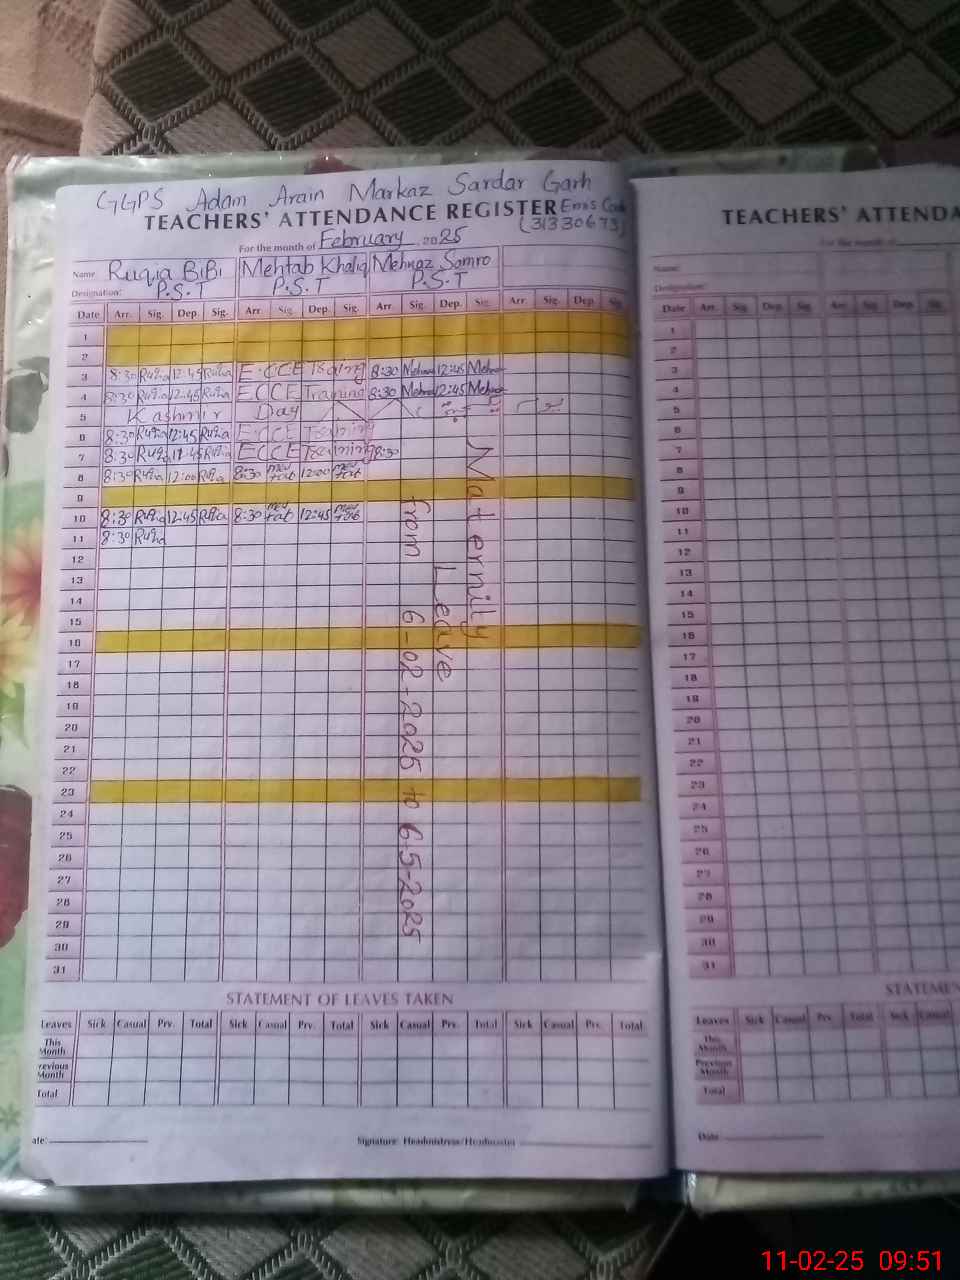 GGPS Adam Arain Markaz Sardar Garh
TEACHERS' ATTENDANCE REGISTER Emis Code
(31330673)
For the month of February 2025
Name Ruqia BiBi Mehtab Khaliq Mehnaz Somro
Designation: P.S.T P.S.T P.S.T
Date Arr. Sig. Dep. Sig. Arr Sig. Dep. Sig. Arr. Sig. Dep. Sig. Arr Sig. Dep. Sig.
1
2
3 8:30 Ruqia 12:45 Ruqia E.CCE Traing 8:30 Mehnaz 12:45 Mehnaz
4 8:30 Ruqia 12:45 Ruqia ECCE Training 8:30 Mehnaz 12:45 Mehnaz
5 Kashmir Day
6 8:30 Ruqia 12:45 Ruqia ECCE Training
7 8:30 Ruqia 12:45 Ruqia ECCE Training 8:30
8 8:30 Ruqia 12:00 Ruqia 8:30 Meh tab 12:00 Meh tab
9
10 8:30 Ruqia 12:45 Ruqia 8:30 Meh tab 12:45 Meh tab
11 8:30 Ruqia
12
13
14
15
16
17
18
19
20
21
22
23
24
25
26
27
28
29
30
31
Maternity
Leave
from 6-02-2025 to 6.5-2025
STATEMENT OF LEAVES TAKEN
Leaves Sick Casual Prv. Total Sick Casual Prv. Total Sick Casual Prv. Total Sick Casual Prv. Total
This Month
revious Month
Total
ate:
Signature: Headmistress/Headmaster
TEACHERS' ATTENDA
For the month of
Name:
Designation:
Date Arr. Sig. Dep. Sig. Arr. Sig. Dep. Sig.
1
2
3
4
5
6
7
8
9
10
11
12
13
14
15
16
17
18
19
20
21
22
23
24
25
26
27
28
29
30
31
STATEMEN
Leaves Sick Casual Prv. Total Sick Casual
This Month
Previous Month
Total
Date
11-02-25 09:51